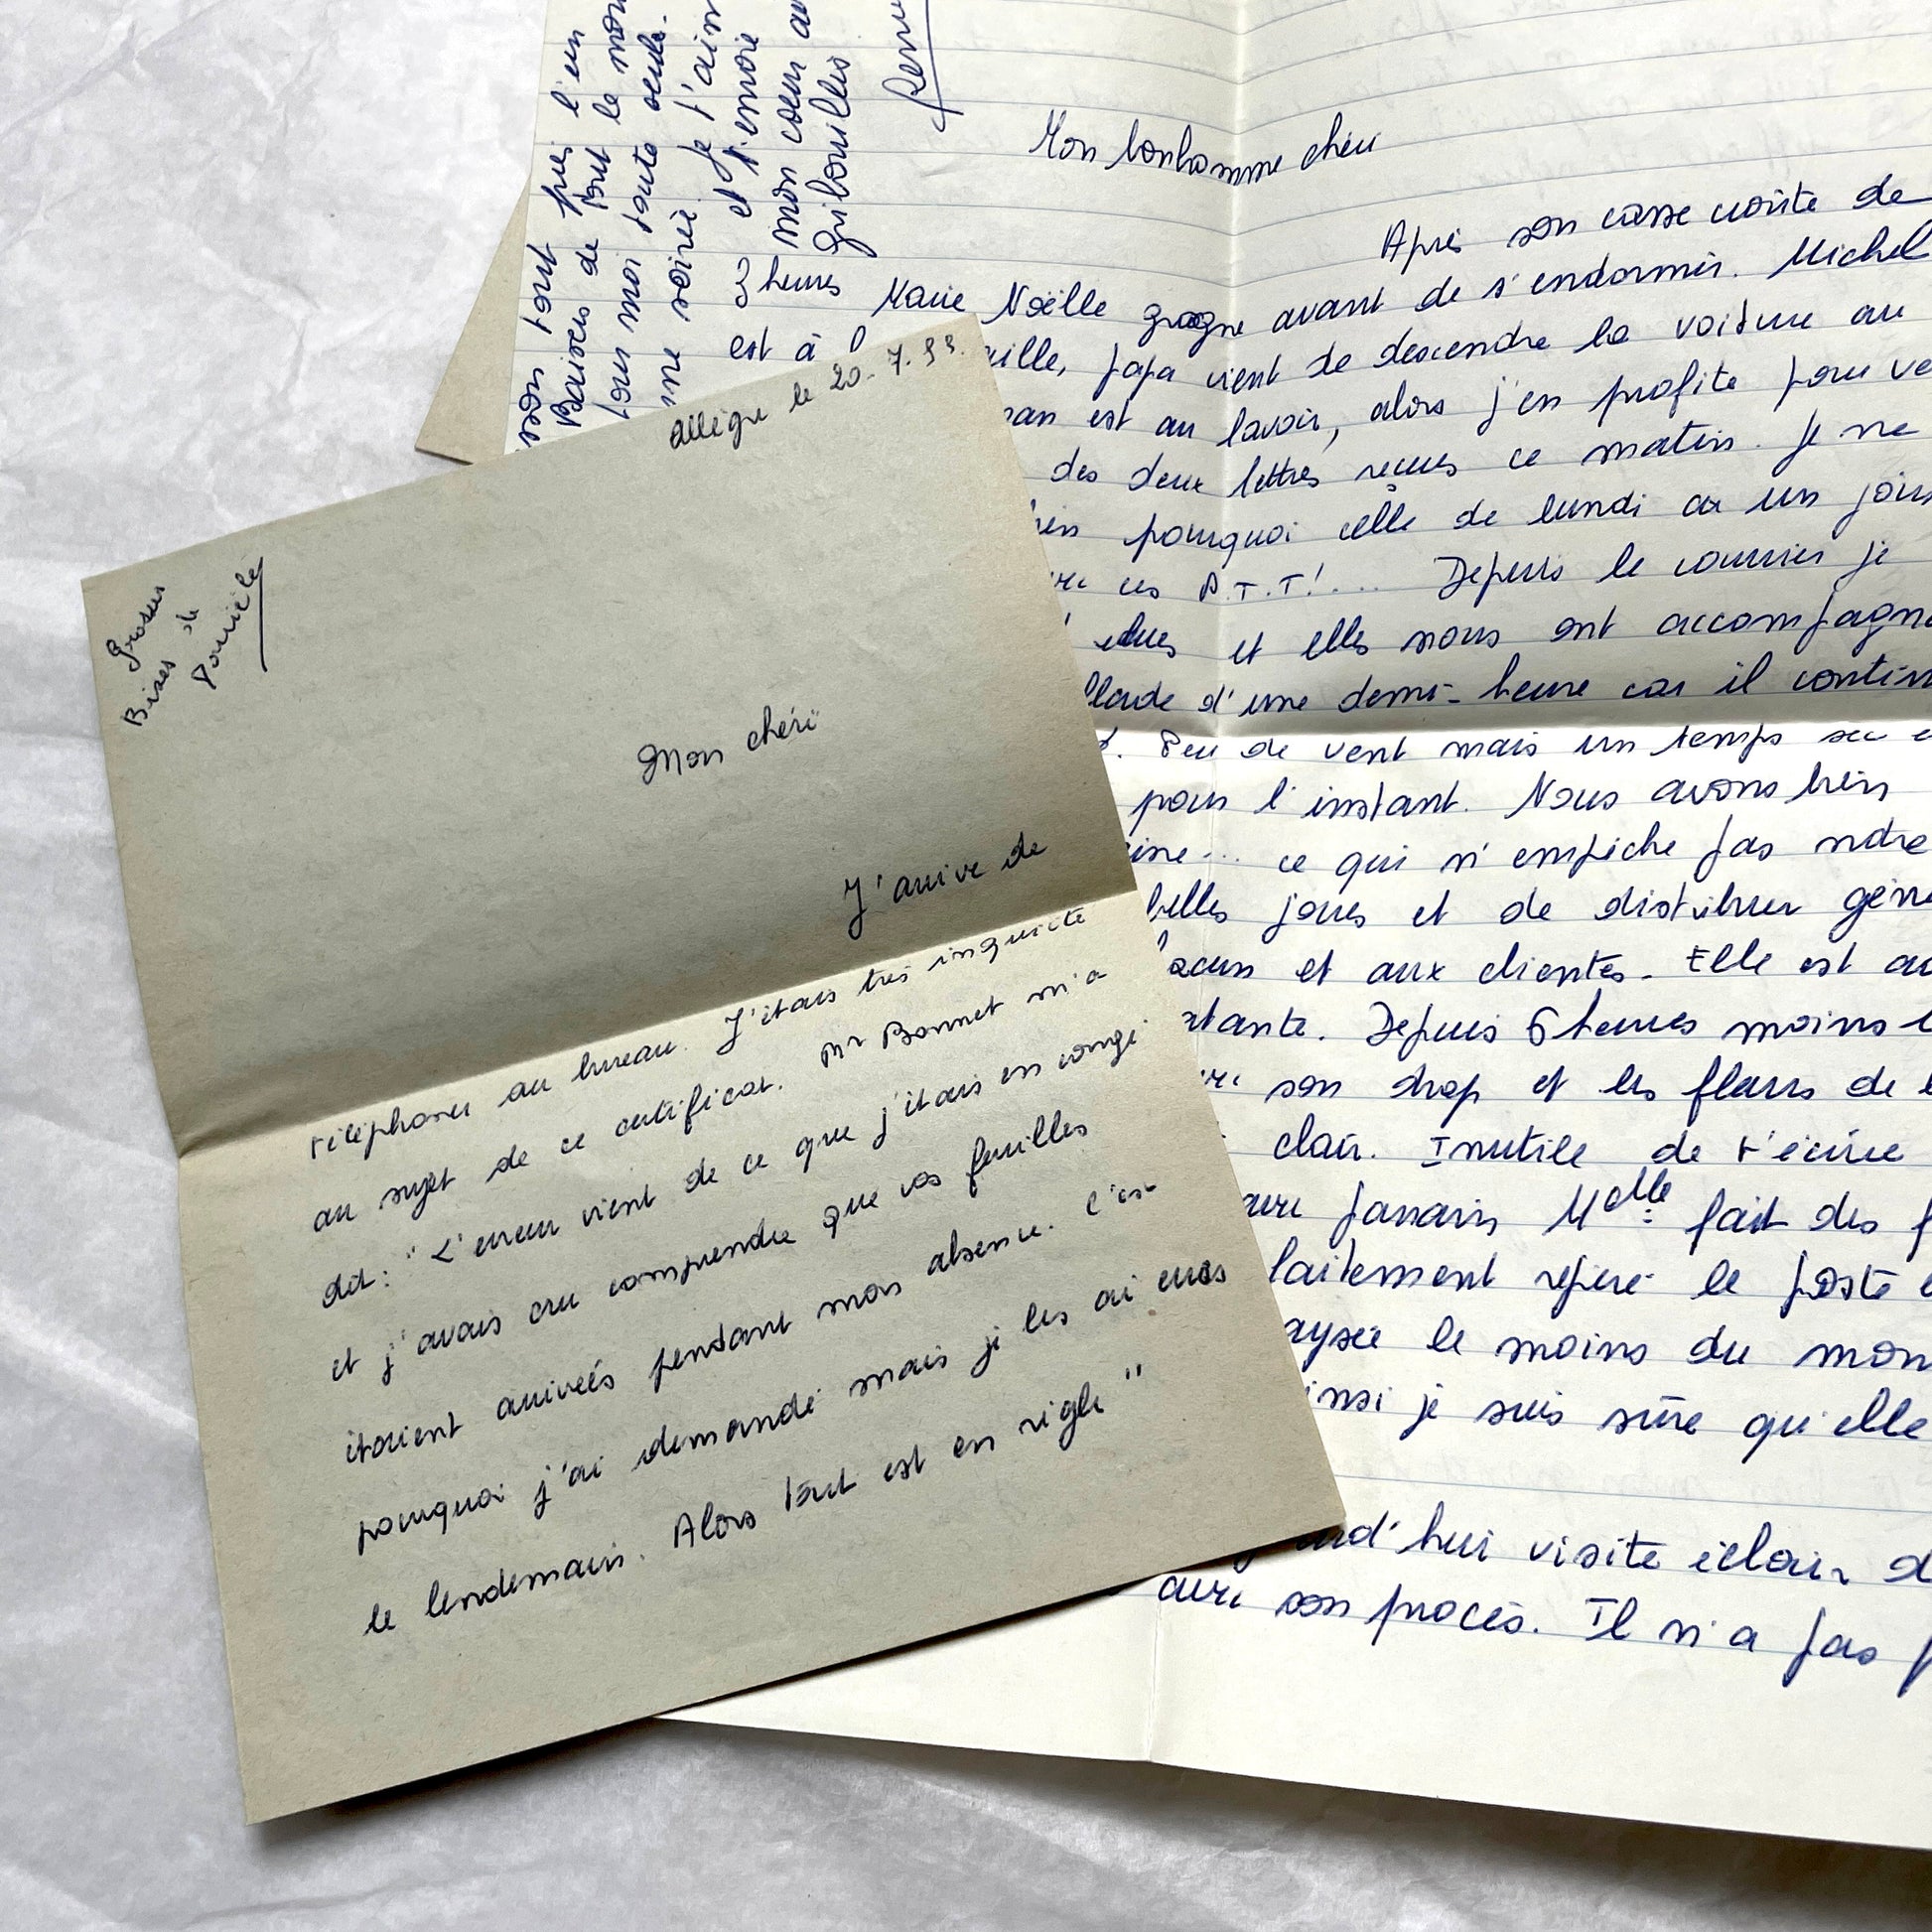 Allègre le 20-7.53.
Grosses
Bises de
Mon chéri
J'arrive de
téléphoner au bureau. J'étais très inquiète
au sujet de ce certificat. Mr Bonnet m'a
dit: "L'erreur vient de ce que j'étais en congé
et j'avais cru comprendre que vos feuilles
étaient arrivées pendant mon absence. C'est
pourquoi j'ai demandé mais je les ai eues
le lendemain. Alors tout est en règle"
sont tout près l'un
Baisers de tout le
tous moi toute seule.
une soirée. Je t'aim
et t'envoie
mon cœur
Mon bonhomme chéri
Après son casse croûte de
3 heures Marie Noëlle grogne avant de s'endormir. Michel
est à aille, papa vient de descendre la voiture au
man est au lavoir, alors j'en profite pour
des deux lettres reçues ce matin. Je ne
pourquoi celle de lundi a un jour
ces P.T.T!.... Depuis le courrier je
et elles nous ont accompagn
llade d'une demi-heure car il contin
Peu de vent mais un temps sec
pour l'instant. Nous avons bien
ine... ce qui n'empêche pas notre
belles joues et de distribuer géné
acun et aux clientes. Elle est au
tante. Depuis 6 heures moins
son drap et les fleurs de
clair. Inutile de t'écrire
jamais Melle fait des
faitement repéré le poste
aysée le moins du mon
insi je suis sûre qu'elle
urd'hui visite éclair d
avec son procès. Il n'a pas